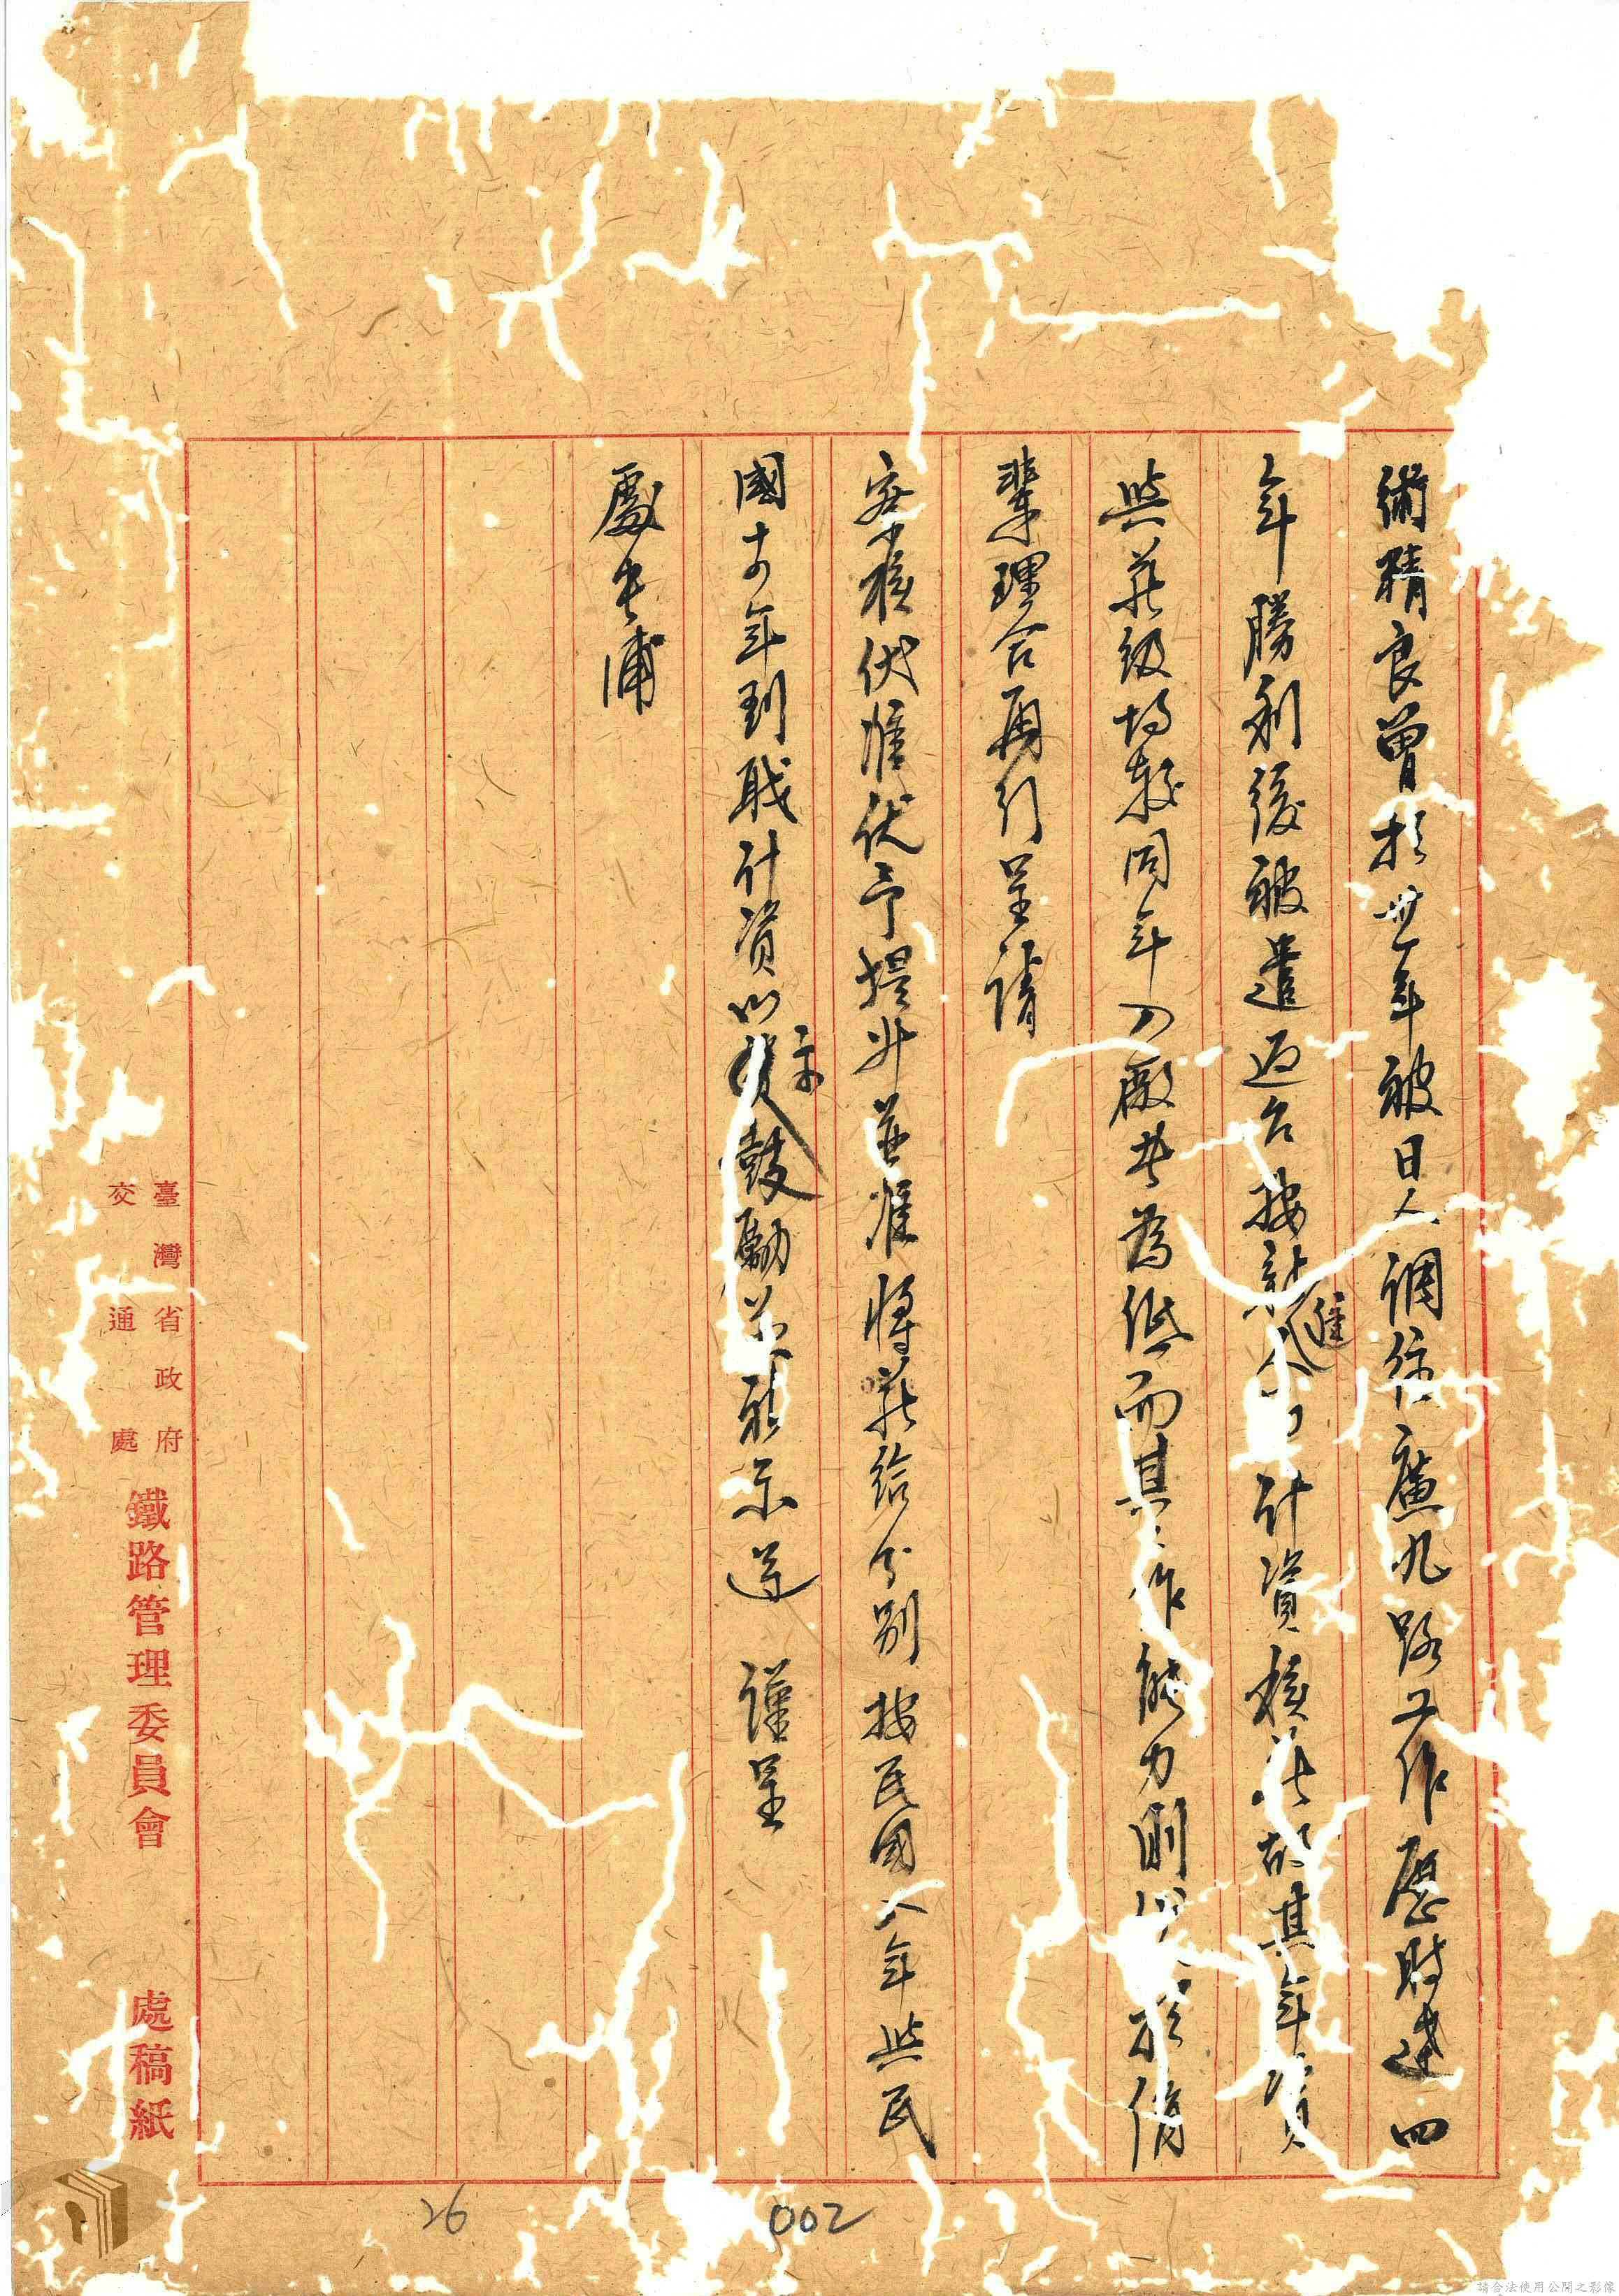 術精良曾於卅一年被日人調往廣九路工作歷時達四
年勝利後被遣返台按新進計資核薪故其年資
與薪級均較同年入廠者為低而其作能力則於儕
輩理合再行呈請
察核伏准予提升並准將薪給分別按民國八年與民
國十四年到職計資以示鼓勵並祈示遵 謹呈
處長浦
臺灣省政府
交通處
鐵路管理委員會 處稿紙
26
002
請合法使用公開之影像